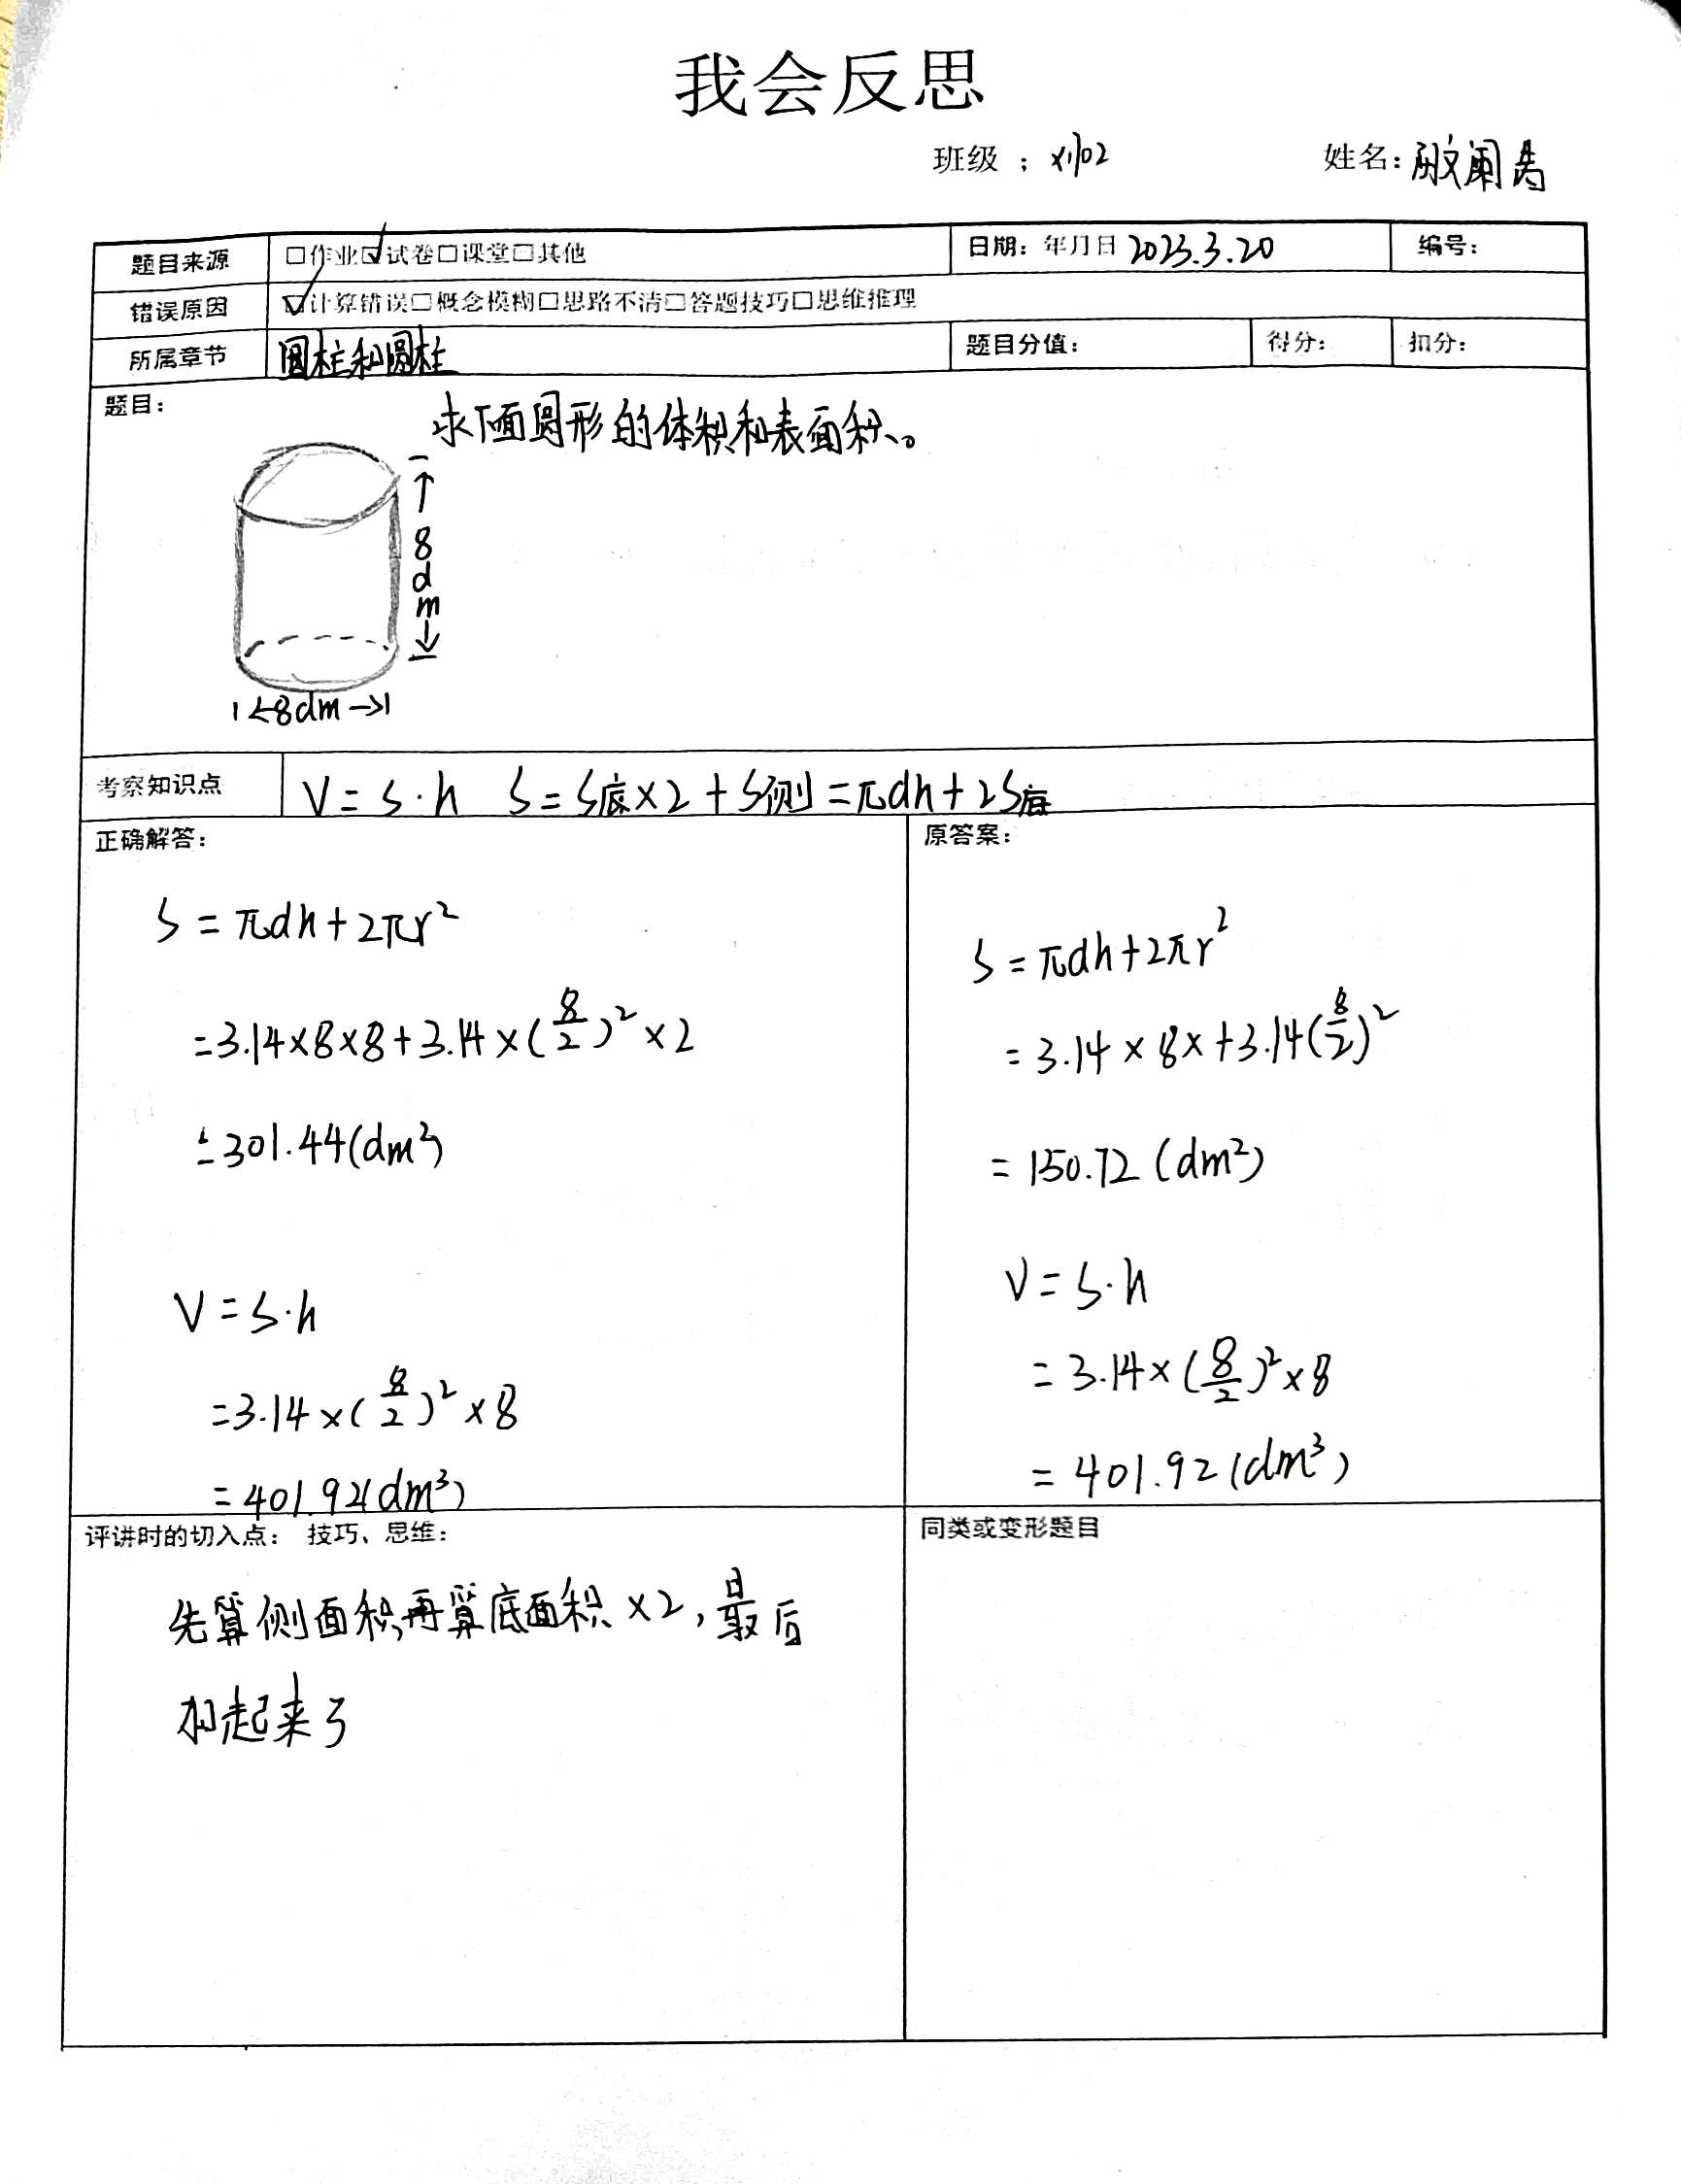 我会反思
班级：x1702 姓名：
题目来源 □作业☑试卷□课堂□其他 日期：年月日 2023.3.20 编号：
错误原因 ☑计算错误□概念模糊□思路不清□答题技巧□思维推理
所属章节 圆柱和圆柱 题目分值： 得分： 扣分：
题目：
求下面圆形的体积和表面积。
8dm
8dm
考察知识点 V=S·h S=S底×2+S侧=πdh+2S底
正确解答：
S=πdh+2πr²
=3.14×8×8+3.14×(8/2)²×2
=301.44(dm²)
V=S·h
=3.14×(8/2)²×8
=401.92(dm³)
原答案：
S=πdh+2πr²
=3.14×8×+3.14(8/2)²
=150.72(dm²)
V=S·h
=3.14×(8/2)²×8
=401.92(dm³)
评讲时的切入点： 技巧、思维：
先算侧面积,再算底面积×2,最后
加起来了
同类或变形题目